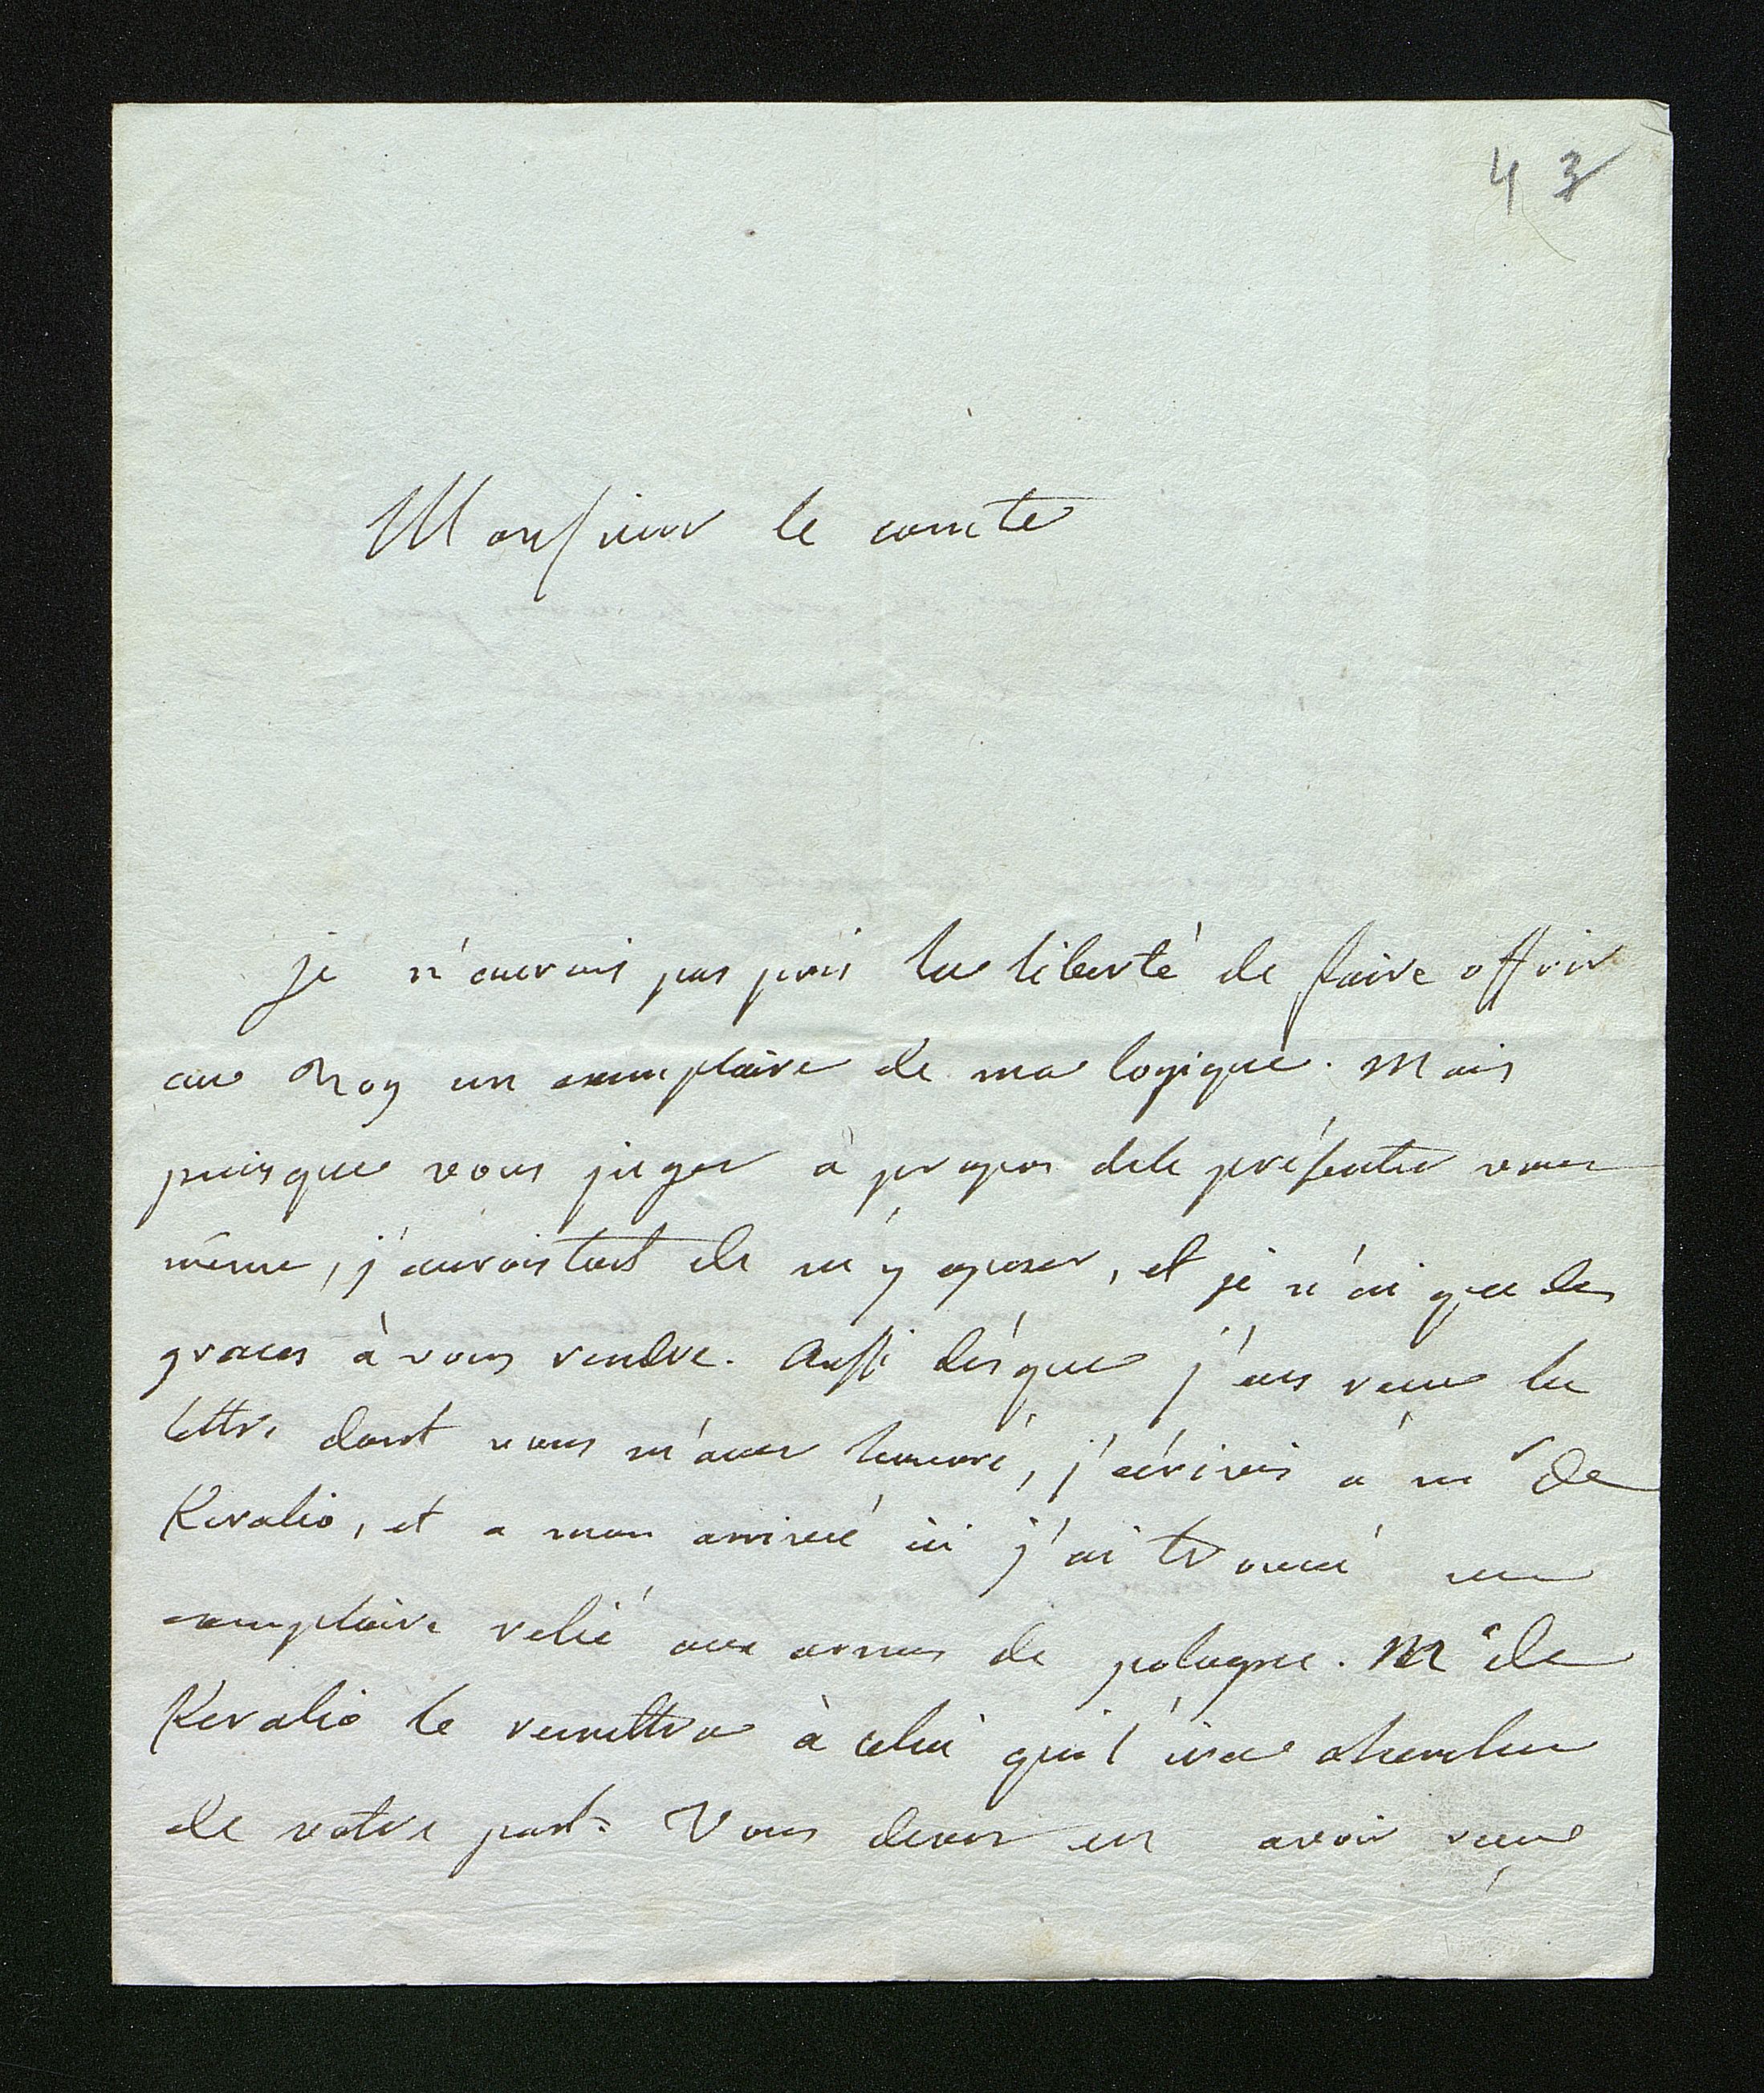 43
Monsieur le comte
je n'aurois pas pris la liberté de faire offrir
au Roy un exemplaire de ma logique. Mais
puisque vous jugez à propos de le présenter vous
même, j'aurois tort de m'y oposer, et je n'ai que des
graces à vous rendre. Aussi dès que j'eus receu la
lettre dont vous m'avez honoré, j'écrivis a mr de
Keralio, et a mon arrivée ici j'ai trouvé un
exemplaire relié aux armes de pologne. Mr de
Keralio le remettra à celui qui l'ira chercher
de votre part. Vous devez en avoir receu